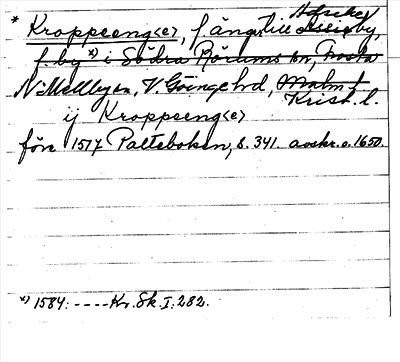 * Kroppseng<e>, f. äng till
f. by x) i Södra Rörums sn, Frosta
N. Mellby sn, V. Göinge hd, Malm. l.
Krist. l.
ij Kroppseng<e>
före 1517 Palteboken, s. 341. avskr. o. 1650.
x) 1584: ---- Kr. Sk. I: 282.